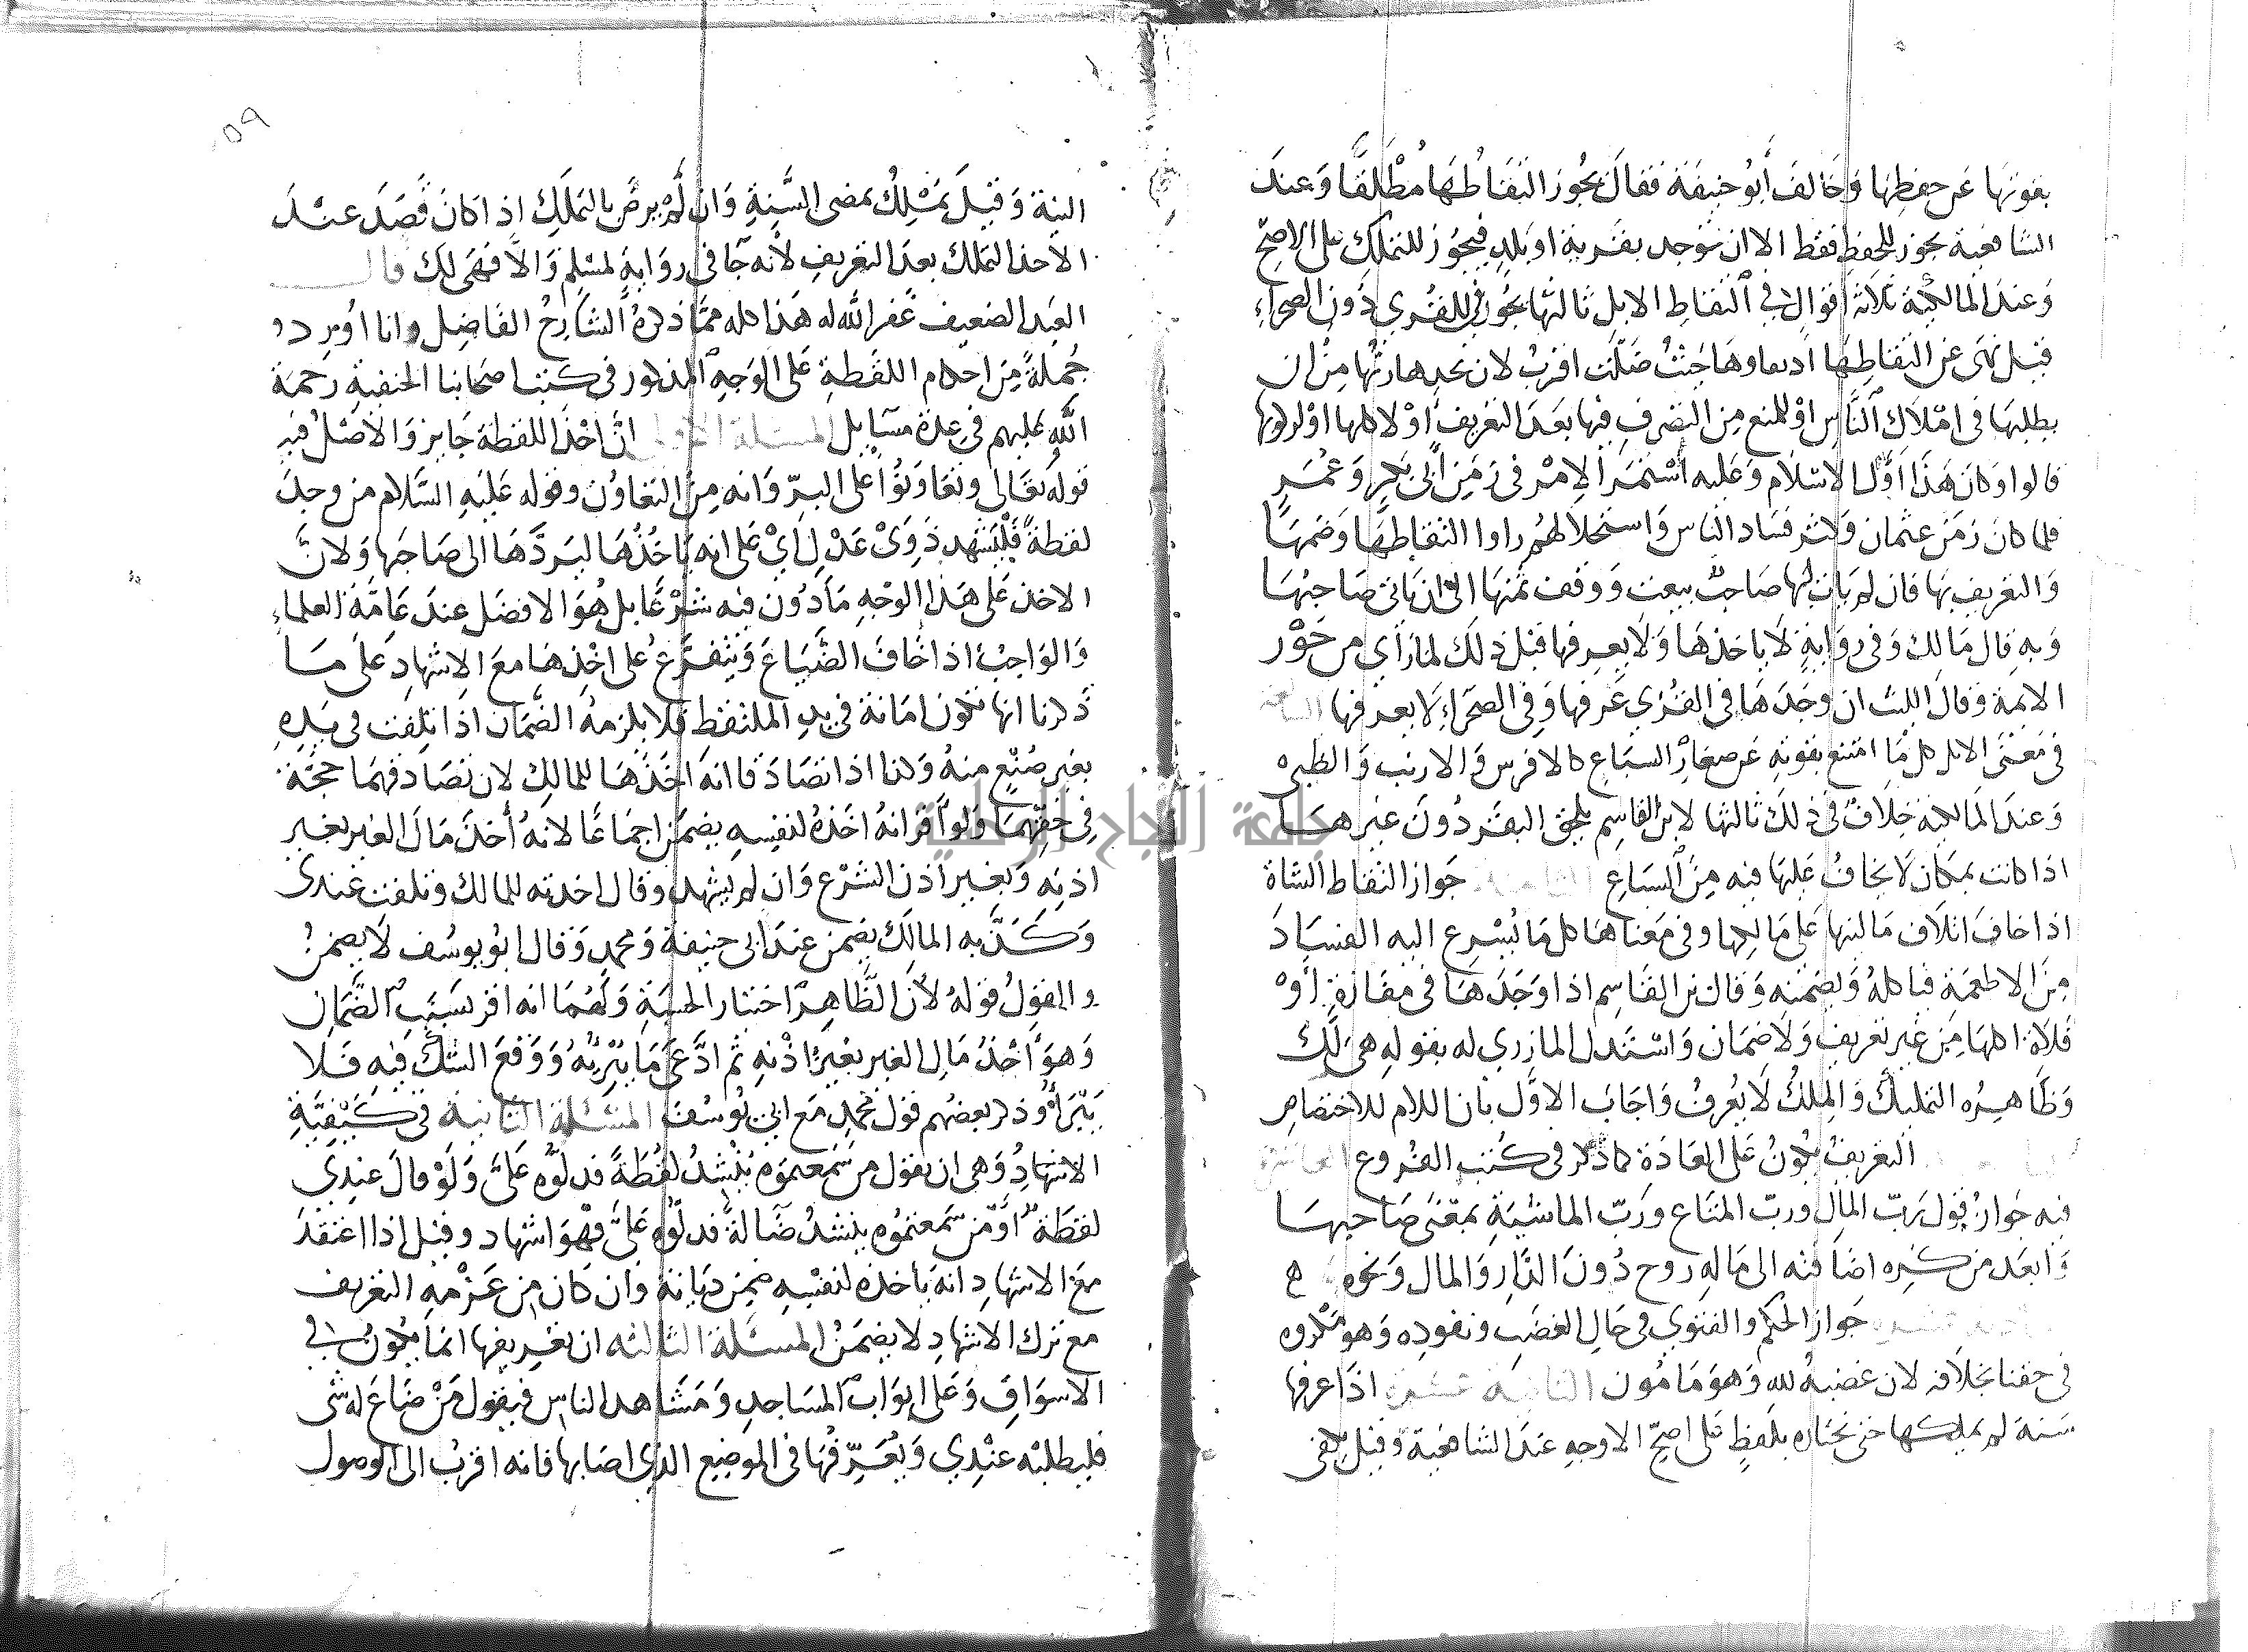 بقوتها عن حفظها وَخَالفَ أبُو حنيفَة فقالَ يجُوز التقاطُهَا مُطْلَقًا وَعندَ
الشافعية يجوز للحفظ فقط الا ان توجد بقرية او بلدٍ فيجوز للتملك على الاصحّ
وَعندَ المالكيَّة ثلاثة اقوال في التقاط الابل ثالثها يجوز في القُرى دُون الصحراءِ
قيل نهى عن التقاطِهَا اذ بقاوهَا حَيْثُ ضَلّت اقربُ لان يجدها ربّها مِن ان
يطلبهَا في امْلاك النَّاس او للمنع مِن التصرفِ فيها بعَدَ التعريف أوْ لاكلها اوْ لركوبها
قالوا وَكانَ هَذا اوَّل الاسْلام وَعَليه اسْتمَر الامْر في زَمَن أبي بكر وَعُمَر
فلما كان زمَن عثمان وَكثر فسَاد الناس وَاستحلالهُم راوا التقاطهَا وَضمهَا
وَالتعريف بهَا فان لم يَات لها صَاحبٌ بيعت وَوقف ثمنهَا الى ان يَاتى صَاحبُهَا
وَبه قال مَالك وَفى روَايةٍ لاَ ياخذهَا وَلاَ يعرفها قبْل ذلك لما رَأي من جَوْر
الايمة وَقال الليث ان وجَدَهَا في القُرى عَرفها وَفى الصحَراءِ لا يعرفها السابعة
في مَعْنَى الابل كل مَا امتنع بقوته عَن صغار السبَاع كالفرس وَالارنب وَالظبي
وَعندَ المالكية خِلاَف في ذلك ثالثها لابن القاسِم يلحق البقر دُونَ غيرهَا
اذا كانت بمكان لاَ يخافُ عَليهَا فيه مِنَ السبَاع الثامنة جَواز التقاط الشاة
اذا خافَ اتلاف مَاليتها عَلى مَالكها وفى مَعناهَا كل مَا يُسْرع اليه الفسَادَ
مِنَ الاطعمَة فياكلهُ وَيضمنه وَقال بن القاسِم اذا وَجَدَهَا في مفازة أوْ
فلاة اكلهَا مِن غير تعريف وَلاَ ضمَان وَاسْتدل المازري له بقوله هىَ لَك
وَظَاهِره التمليك وَالمِلكُ لاَ يُعرفُ وَاجَابَ الاوَّل بَان اللام للاختصَاص
التعريفُ يكُونُ عَلى العَادَة كما ذكر في كُتب الفروع العاشرة
فيه جَوازُ قول رَبّ المال وربّ المتَاع ورَبّ الماشيَةِ بمعَنى صَاحبهَا
وَابعَد من كرِه اضَافته الى مَاله روح دُونَ الدَّار وَالمال وَنحوه
جَواز الحكم والفتوي في حَال الغضَب ونفوده وَهوَ مَكروه
في حقنا بخلافه لان غضبهُ لله وَهوَ مَامُون الثانية عشرة اذا عرفها
سَنة لم يملكها حتى يختاره بلفظٍ على اصحّ الاوجهِ عندَ الشافعية وَقيل يكفى
٥٩
النية وَقيلَ يمَسْلِكُ بمضى السَّنةِ وَان لَّمْ يرضَ بالتمَلكِ اذا كانَ قصَدَ عنْدَ
الاخذ التملك بعدَ التعريفِ لأنه جَا في روَايةٍ لمسْلم وَالاَّ فهَى لكَ قال
العَبد الضعيف غَفر الله له هَذا كله ممَّا ذكرهُ الشارحُ الفاضِل وانا اُورد
جُملةً مِن احكام اللقطةِ عَلى الوَجهِ المذكور في كتب اصحابنا الحنفية رحمَة
الله عليهم في عدّة مسَايل المسئلة الاولى انَّ اخْذَ اللقطة جَايز وَالاصْلُ فيه
قوله تعَالى وتعَاوَنوُا عَلى البرّ وَانه مِنَ التعَاوُن وقوله عَليهِ السَّلام من وجدَ
لقطةً فَلْيُشْهد ذَوَىْ عَدْلٍ أيْ عَلى انه يَاخُذُهَا ليرَدَّهَا الى صَاحبها وَلانَّ
الاخذ عَلى هَذا الوَجْهِ مَاذُون فيه شرْعًا بل هُوَ الافضَل عندَ عَامَّة العلماءِ
وَالوَاجبْ اذا خَافَ الضَّيَاعَ وَيَتفرَّعُ على اخْذِهَا معَ الاشهادِ عَلى مَا
ذكرنا انها تكون امَانة في يدِ الملتقط فلا يلزمهُ الضمَان اذا تلِفت في يَدِهِ
بغير صُنْعٍ منهُ وَكذا اذا تصَادَقا انه اخَذَهَا للمالكِ لان تصَادقهمَا حجَّة
في حَقّهمَا وَلو أقرّ انهُ اخذهُ لنفسِه يضمَن اجمَاعًا لانهُ أخذَ مَالَ الغير بغير
اذنِه وَبغير اذن الشرْع وَان لم يشهد وقال اخذته للمالك وتلفت عندى
وَكَذَّبه المالك يضمن عندَ ابي حنيفة وَمحمدٍ وَقال ابُو يوسُف لاَ يضمنُ
والقولُ قولهُ لأن الظَّاهِر اختار الحسبَةِ وَلهُمَا انه اقر بسَبَبِ الضَّمَان
وَهوَ أخْذُ مَال الغير بغير اذْنِه ثم ادَّعَى مَا يُبْرِيهُ وَوَقعَ الشكُّ فيهِ فَلا
يَبْرَأ وُذكر بعضهم قول محمدٍ مَع ابي يُوسُفَ المسْئلة الثانية في كَيْفيَّة
الاشهادِ وَهى ان يقول من سَمعتموه يَنْشُدُ لُقُطَةً فدلُّوه عَلىَّ وَلَوْ قالَ عندِي
لقطَة أوْ مَن سَّمعتمُوه ينشدُ ضَالةً فدلّوه عَلىَّ فَهْوَ اشهاد وقيل اذا اعتقدَ
معَ الاشهادِ انهُ يَاخذه لنفسِه ضمن ديَانة وَان كَان مِن عَزْمهِ التعريف
مع ترك الاشهادِ لا يضمَنُ المسئلة الثالثه ان تعريفها انمَا يكُونُ في
الاسوَاق وَعَلى ابوَاب المسَاجدِ وَمَشاهد الناس فيقول مَنْ ضَاعَ له شى
فليطلبه عنْدِي وَيُعَرِّفُهَا فى الموضع الذي اصَابها فانه اقربُ الى الوصول
جامعة النجاح الوطنية